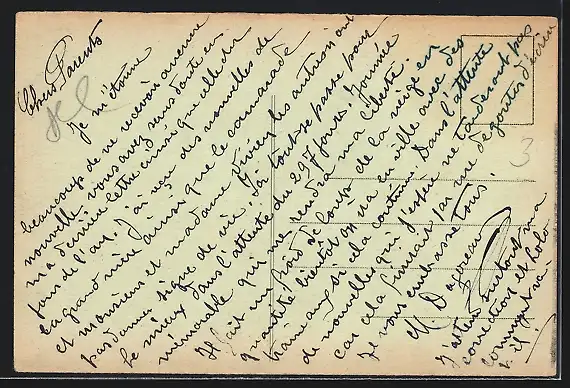 Chers Parents
Je m'étonne
beaucoup de ne recevoir aucune
nouvelle, vous avez sans doute eu
ma dernière lettre ainsi que celle du
jour de l'an. J'ai reçu des nouvelles de
la grand mère ainsi que le camarade
et monsieur et madame les autres ont
pas donné signe de vie. Ici tout se passe pour
le mieux dans l'attente du 297 jours. Journée
mémorable qui me rendra ma liberté.
Il fait un froid de loups de la neige en
quantité bientôt on ira en ville avec des
traineaux si cela continue. Dans l'attente
de nouvelles qui j'espère ne tarderont pas
car cela finirait par me dégouter d'écrire
Je vous embrasse tous.
M
J'attend surtout ma
correction et
3